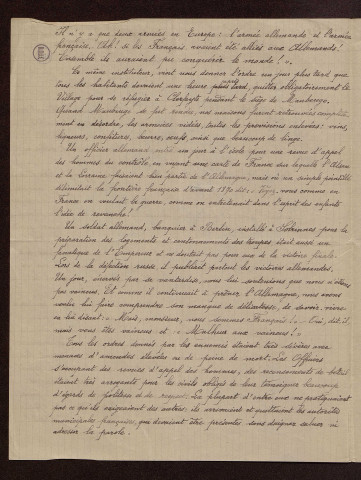 Il n'y a que deux armées en Europe : l'armée allemande et l'armée
française. Ah! si les Français avaient été alliés aux Allemands!
Ensemble ils auraient pu conquérir le monde! ».
Le même instituteur, vint nous donner l'ordre un jour plus tard que
tous les habitants devaient une heure plus tard, quitter obligatoirement le
village pour se réfugier à pendant le siège de Maubeuge.
Quand Maubeuge se fut rendu, nos maisons furent retrouvées complète-
ment en désordre, les armoires vidées, toutes les provisions enlevées : vins,
liqueurs, confitures, beurre, oeufs ainsi que beaucoup de linge.
Un officier allemand entré un jour à l'école pour une revue d'appel
des hommes du contrôle en voyant une carte de France sur laquelle l'Alsace
et la Lorraine faisaient bien partie de l'Allemagne, mais où un simple pointillé
délimitait la frontière française d'avant 1870 dit : « Voyez, vous comme en
France on voulait la guerre, comme on entretenait dans l'esprit des enfants
l'idée de revanche!
Un soldat allemand, banquier à Berlin, installé à pour la
préparation des logements et cantonnements des troupes était aussi un
fanatique de l'Empereur et ne doutait pas pour eux de la victoire finale.
Lors de la défection russe il publiait partout les victoires allemandes.
Un jour, énervé par sa vantardise, nous lui soutenions que nous n'étions
pas vaincus. Et comme il continuait à prôner l'Allemagne, nous avons
voulu lui faire comprendre son manque de délicatesse, de savoir-vivre
en lui disant : « Mais, monsieur, nous sommes Français! » . Oui, dit-il
mais vous êtes vaincus et « Malheur aux vaincus! »
Tous les ordres donnés par les ennemis étaient très sévères avec
menaces d'amendes élevées ou de peine de mort. Les Officiers
s'occupant des revues d'appel des hommes, des recensements de bétail
étaient très arrogants pour les civils obligés de leur témoigner beaucoup
d'égards de politesse et de respect. La plupart d'entre eux ne pratiquaient
pas ce qu'ils exigeaient des autres; ils arrivaient et quittaient les autorités
municipales françaises, qui devaient être présentes sans daigner saluer ni
adresser la parole.